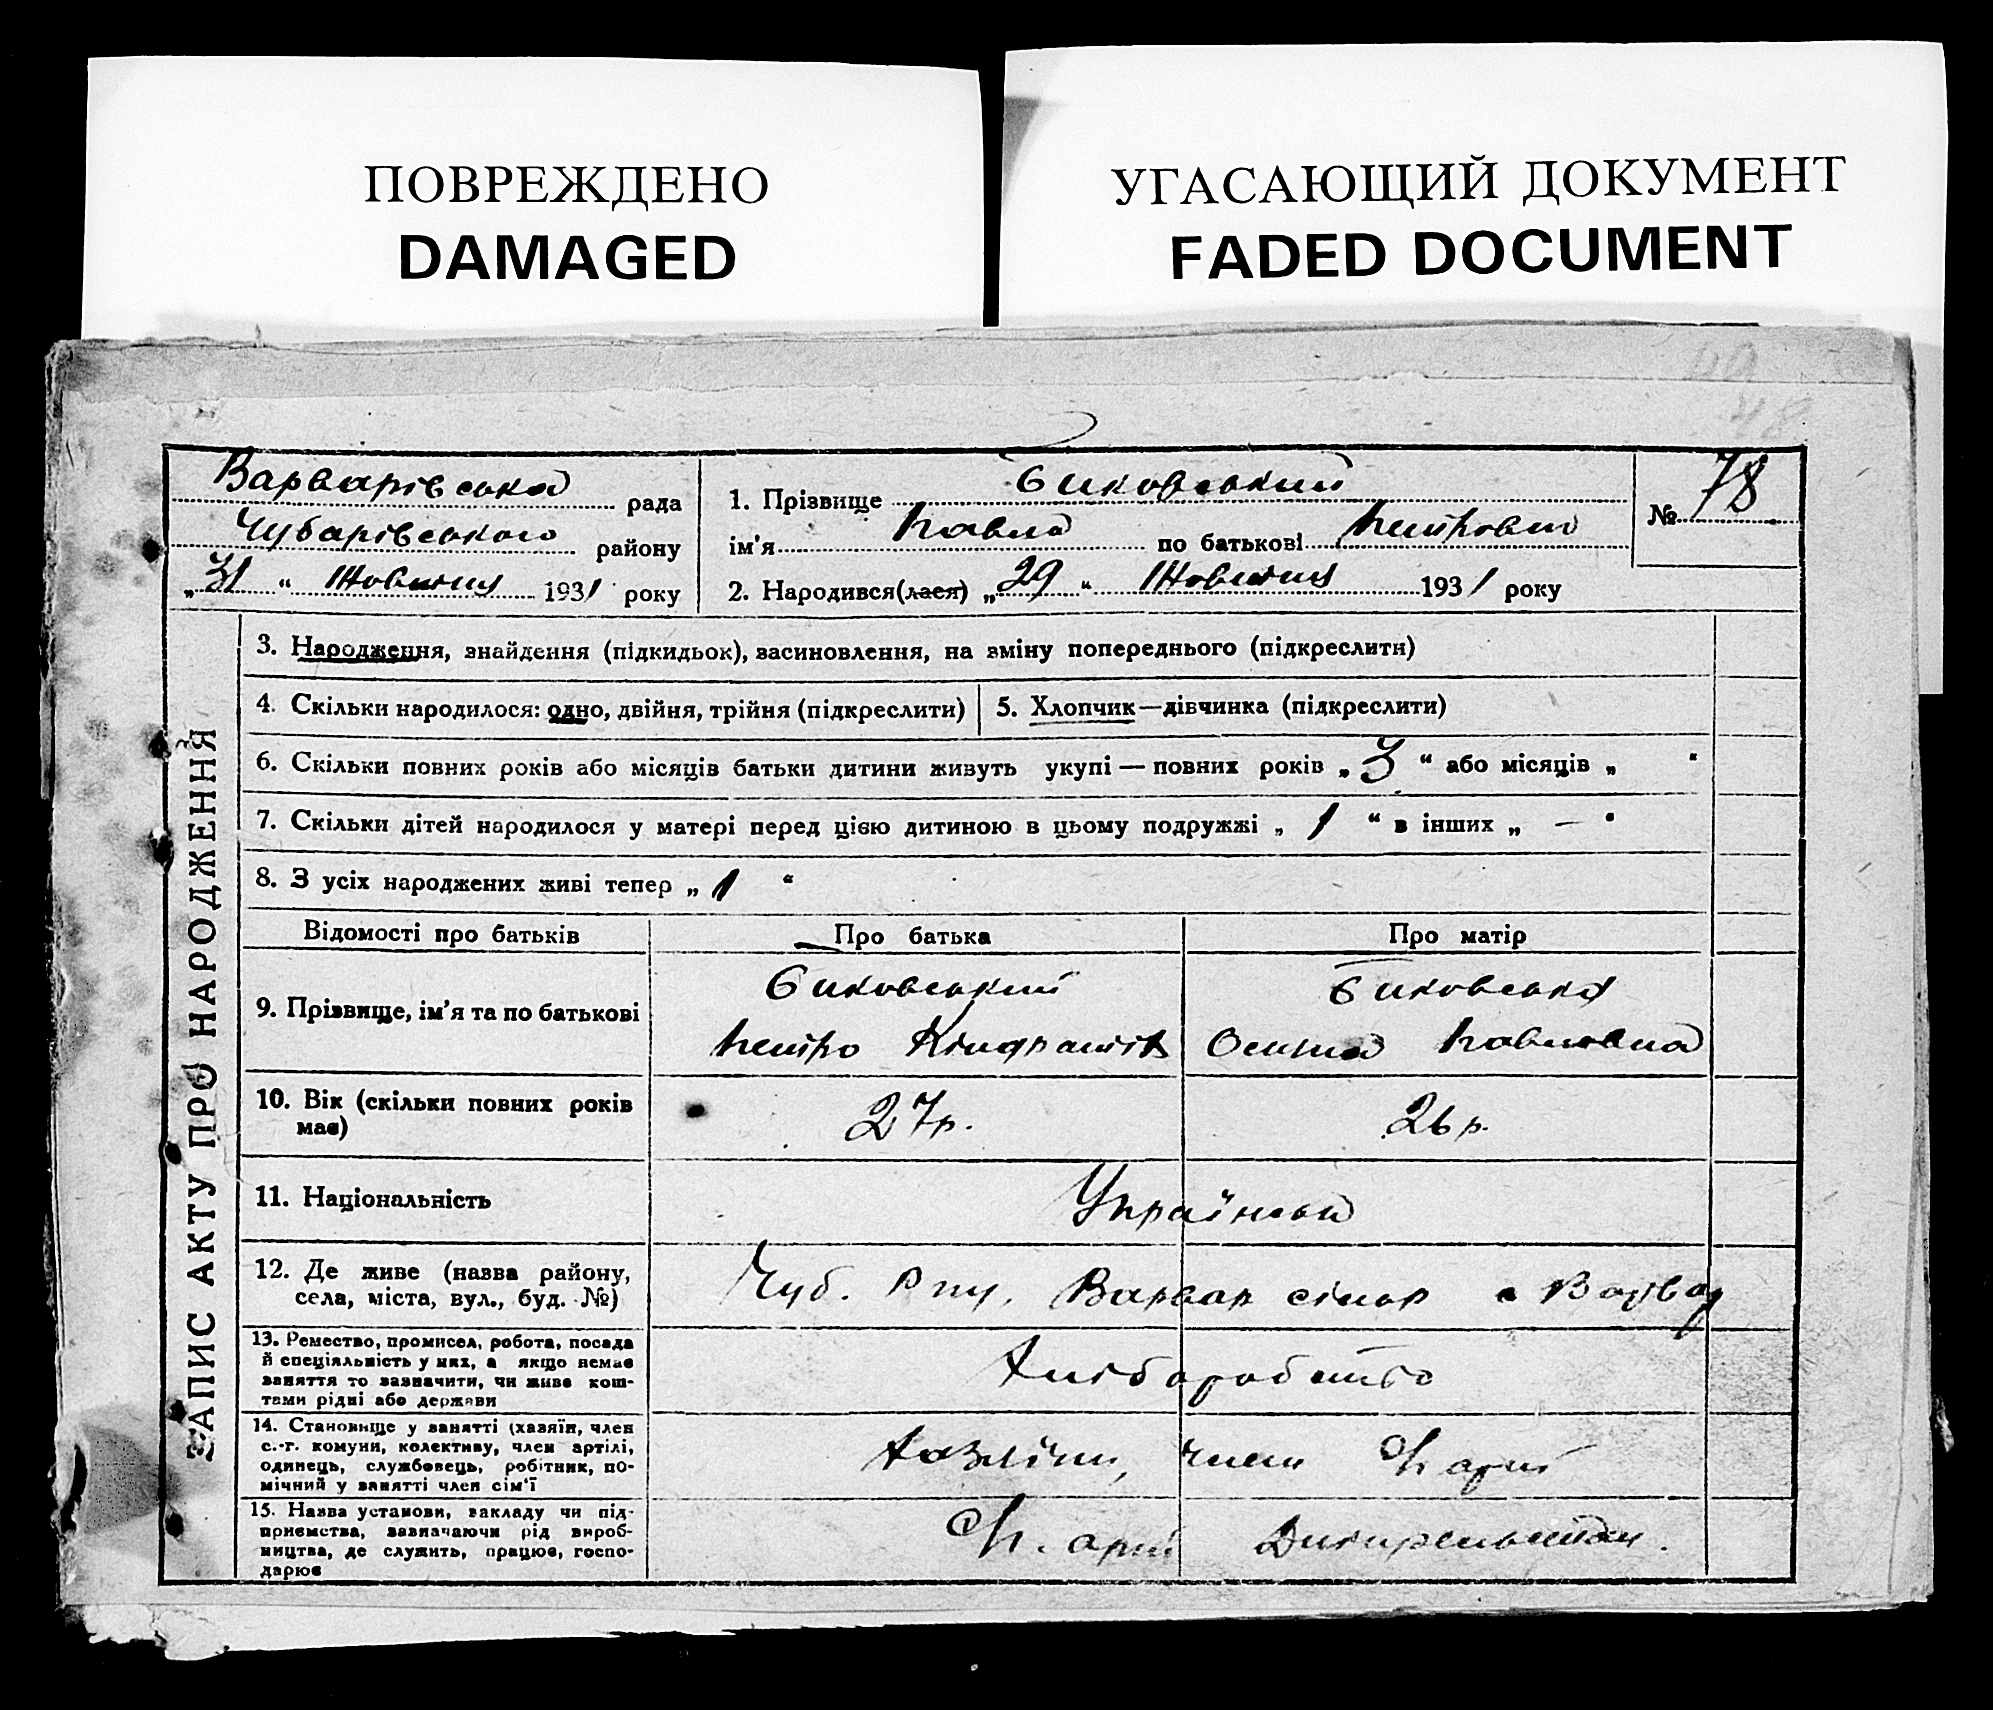 ПОВРЕЖДЕНО
DAMAGED
УГАСАЮЩИЙ ДОКУМЕНТ
FADED DOCUMENT
49
48
Варварівська рада
Чубарівського району
„31“ Жовтня 1931 року
1. Прізвище Биковський
ім'я Павло по батькові Петрович
2. Народився(лася) „29“ Жовтня 1931 року
№ 78
ЗАПИС АКТУ ПРО НАРОДЖЕННЯ
3. Народження, знайдення (підкидьок), васиновлення, на зміну попереднього (підкреслити)
4. Скільки народилося: одно, двійня, трійня (підкреслити)
5. Хлопчик—дівчинка (підкреслити)
6. Скільки повних років або місяців батьки дитини живуть укупі — повних років „3“ або місяців „ “
7. Скільки дітей народилося у матері перед цією дитиною в цьому подружжі „1“ в інших „—“
8. З усіх народжених живі тепер „1“
Відомості про батьків
Про батька
Про матір
9. Прізвище, ім'я та по батькові
Биковський
Петро Кіндратів
Биковська
Павловна
10. Вік (скільки повних років має)
27р.
26р.
11. Національність
Українська
12. Де живе (назва району,
села, міста, вул., буд. №)
Чуб. Рну, Варвар сільр
13. Ремество, промисел, робота, посада
й спеціяльність у них, а якщо немає
заняття то зазначити, чи живе кош-
тами рідні або держави
Хліборобство
14. Становище у занятті (хазяїн, член
с.-г. комуни, колективу, член артілі,
одинець, службовець, робітник, по-
мічний у занятті член сім'ї
член
15. Назва установи, закладу чи під-
приємства, зазначаючи рід вироб-
ництва, де служить, працює, госпо-
дарює